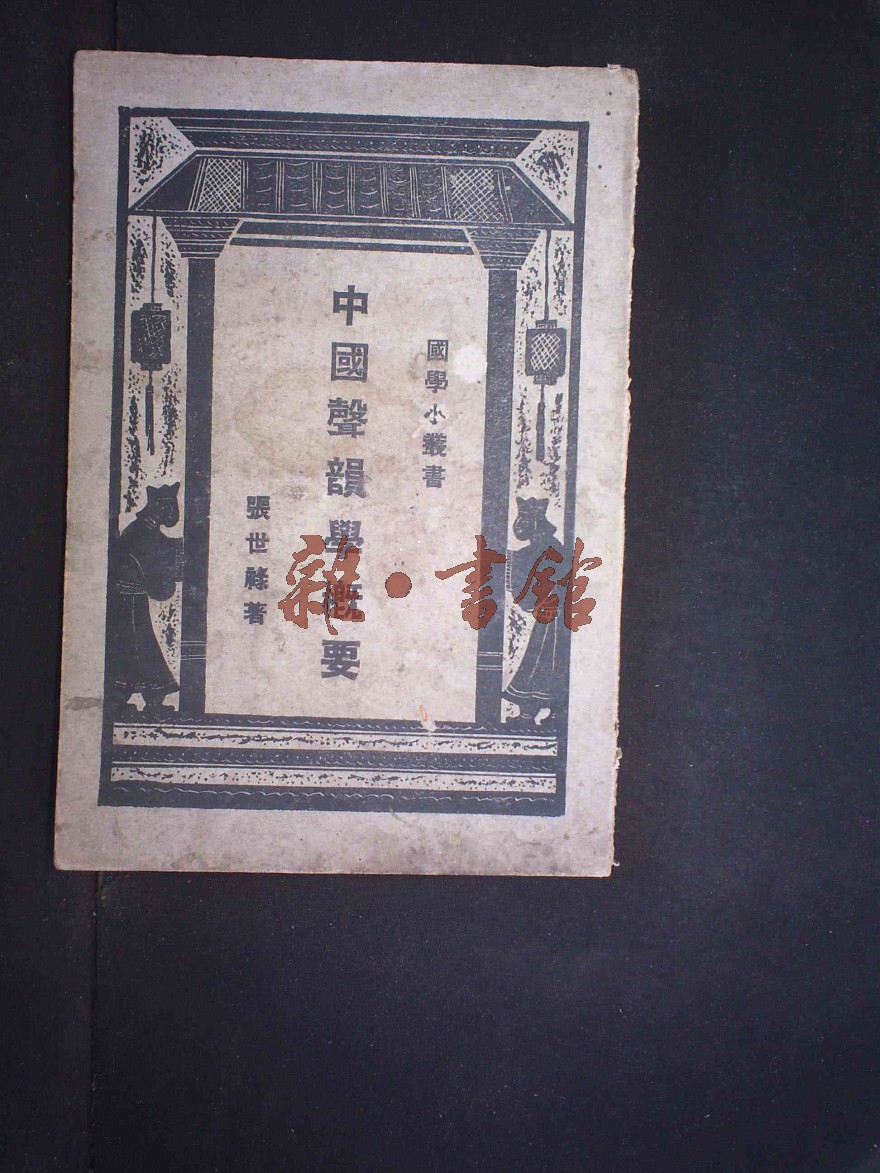 國學小叢書
中國聲韻學概要
張世祿著
雜·書館